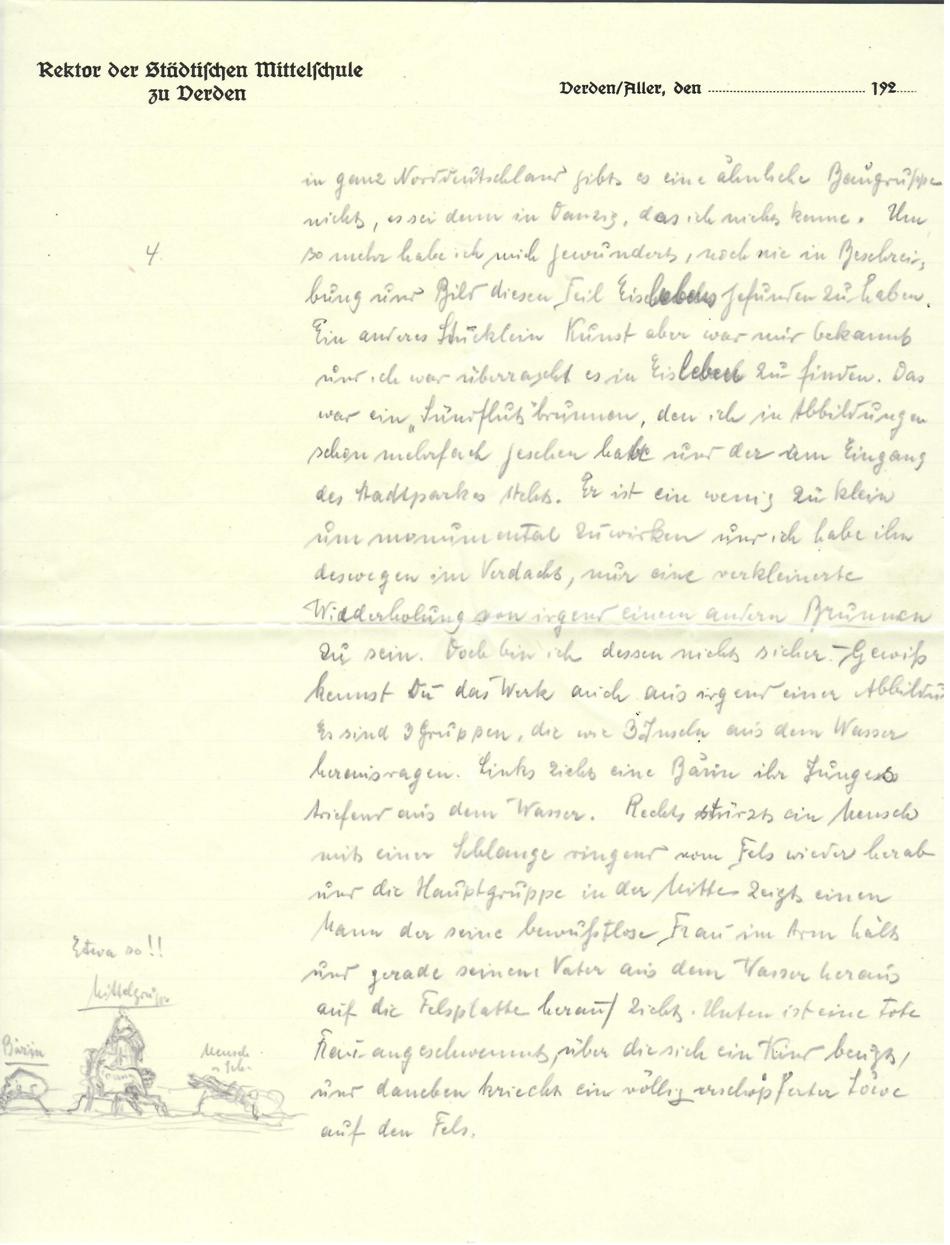 Rektor der Städtischen Mittelschule
zu Verden
Verden/Aller, den ........................ 192.....
4.
in ganz Norddeutschland gibts es eine ähnliche Baugruppe
nicht, es sei denn in Danzig, das ich nicht kenne. Um
so mehr habe ich mich gewundert, noch nie in Beschrei-
bung und Bild diesen Teil Eislebens gefunden zu haben.
Ein anderes Stücklein Kunst aber war mir bekannt
und ich war überrascht es in Eisleben zu finden. Das
war ein „Sündflut"brunnen, den ich in Abbildungen
schon mehrfach gesehen habe und der am Eingang
des Stadtparkes steht. Er ist ein wenig zu klein
um monumental zu wirken und ich habe ihn
deswegen im Verdacht, nur eine verkleinerte
Wiederholung von irgend einem andern Brunnen
zu sein. Doch bin ich dessen nicht sicher. - Gewiß
kennst Du das Werk auch aus irgend einer Abbildu
Es sind 3 Gruppen, die wie 3 Inseln aus dem Wasser
herausragen. Links zieht eine Bärin ihr Junges
triefend aus dem Wasser. Rechts stürzt ein Mensch
mit einer Schlange ringend vom Fels wieder herab
und die Hauptgruppe in der Mitte zeigt einen
Mann der seine bewußtlose Frau im Arm hält
und gerade seinen Vater aus dem Wasser heraus
auf die Felsplatte herauf zieht. Unten ist eine tote
Frau angeschwemmt, über die sich ein Kind beugt,
und daneben kriecht ein völlig erschöpfter Löwe
auf den Fels.
Etwa so!!
Mittelgruppe
Bärin
Mensch
u. Schl.